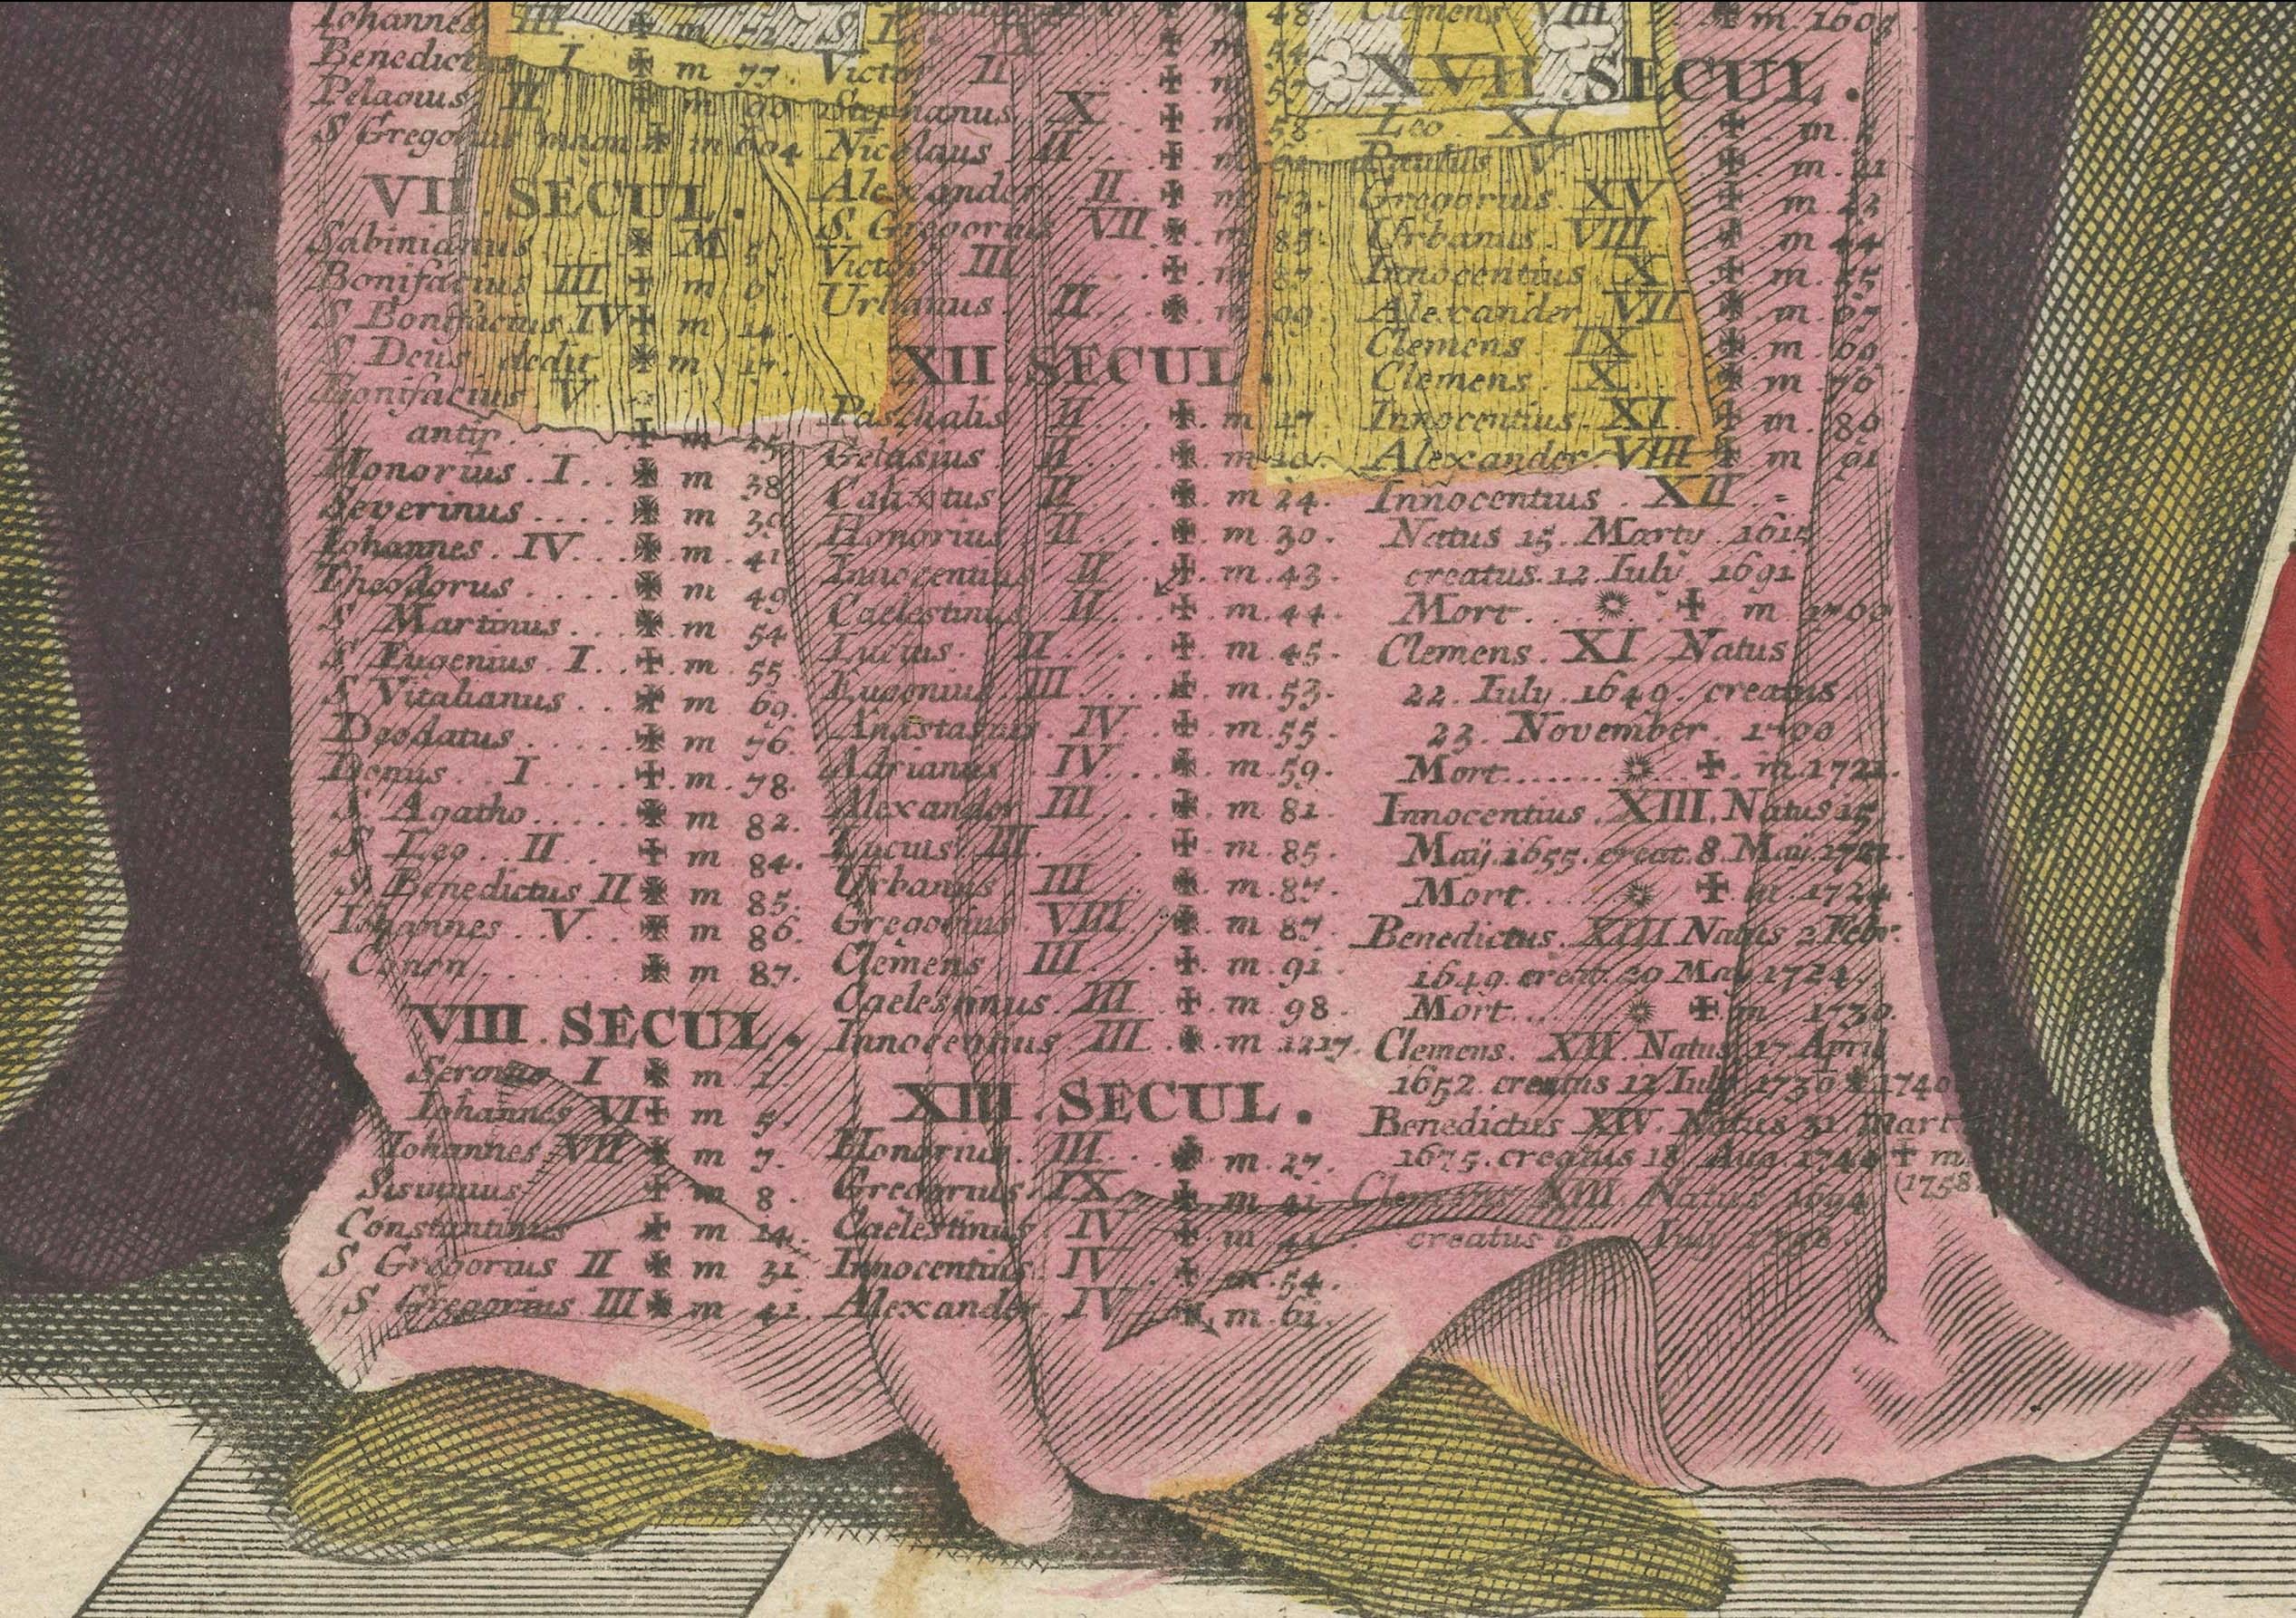 Iohannes III ✠ m 72.
Benedictus I ✠ m 77.
Pelagius II ✠ m 90.
S Gregorius magn ✠ m 604
VII. SECUL.
Sabinianus ✠ M 5.
Bonifacius III ✠ m 6.
S Bonifacius IV ✠ m 14.
S. Deus dedit ✠ m 17.
Bonifacius V.
antip. ✠ m 25.
Honorius. I.. ✠ m 38
Severinus .... ✠ m 39
Iohannes. IV... ✠ m 41
Theodorus ..... ✠ m 49
S Martinus ... ✠ m 54
S Eugenius. I.. ✠ m 55
S Vitalianus .. ✠ m 69.
Deodatus ..... ✠ m 76.
Donus.. I .... ✠ m. 78.
S. Agatho ..... ✠ m 82.
S Leo.. II .... ✠ m 84.
S. Benedictus II ✠ m 85.
Iohannes.. V.. ✠ m 86.
Conon ....... ✠ m 87.
VIII. SECUL.
Sergius I ✠ m 1.
Iohannes VI ✠ m 5.
Iohannes VII ✠ m 7.
Sisinnius ✠ m 8.
Constantinus ✠ m 14.
S Gregorius II ✠ m 31
S. Gregorius III ✠ m 41.
✠ m 48
S Leo IX ✠ m 54
Victor II ✠ m 57
Stephanus X ✠ m 58.
Nicolaus. II... ✠ m
Alexander II ✠ m 73.
S. Gregorius VII ✠ m 85.
Victor III ✠ m 87.
Urbanus II ✠ m 99.
XII SECUL.
Paschalis II ✠ m 17.
Gelasius II ✠ m
Calixtus II ✠ m 24.
Honorius II ✠ m 30.
Innocentius II ✠ m. 43.
Caelestinus II.. ✠ m. 44.
Lucius. II.. ✠ m. 45.
Eugenius III.... ✠ m. 53.
Anastasius. IV... ✠ m. 55.
Adrianus IV... ✠ m. 59.
Alexander III ✠ m 81.
Lucius III. ✠ m. 85.
Urbanus III ✠ m. 87.
Gregorius VIII ✠ m 87.
Clemens III.. ✠ m. 91.
Caelestinus. III ✠ m 98.
Innocentius III. ✠ m 1217.
XIII. SECUL.
Honorius. III... ✠ m. 27.
Gregorius. IX. ✠ m 41.
Caelestinus IV ✠ m 41.
Innocentius IV ✠ m. 54.
Alexander IV ✠ m. 61.
Clemens VIII ✠ m. 1605
XVII. SECUL.
Leo. XI ✠ m.
Paulus V ✠ m. 21
Gregorius. XV ✠ m 23
Urbanus. VIII ✠ m 44
Innocentius X ✠ m. 55
Alexander VII ✠ m 67
Clemens. IX ✠ m 69
Clemens. X. ✠ m 76
Innocentius. XI. ✠ m. 89
Alexander. VIII ✠ m 91
Innocentius. XII.
Natus 15. Marty. 1615
creatus. 12. Iuly 1691
Mort.... ✠ m 1700
Clemens. XI Natus
22. Iuly. 1649. creatus
23. November. 1700
Mort....... ✠. m. 1721.
Innocentius. XIII. Natus 15
Maÿ. 1655. creat. 8. Maÿ. 1721.
Mort..... ✠ m. 1724.
Benedictus. XIII Natus 2 Febr.
1649. creat. 29 May 1724.
Mort.... ✠ m 1730.
Clemens. XII. Natus 17. April
1652. creatus 12 July 1730 ✠ 1740
Benedictus XIV. Natus 31. Mart
1675. creatus 18 Aug. 1740 ✠ m
(1758
Clemens XIII. Natus 1694
creatus 6 July 1758.